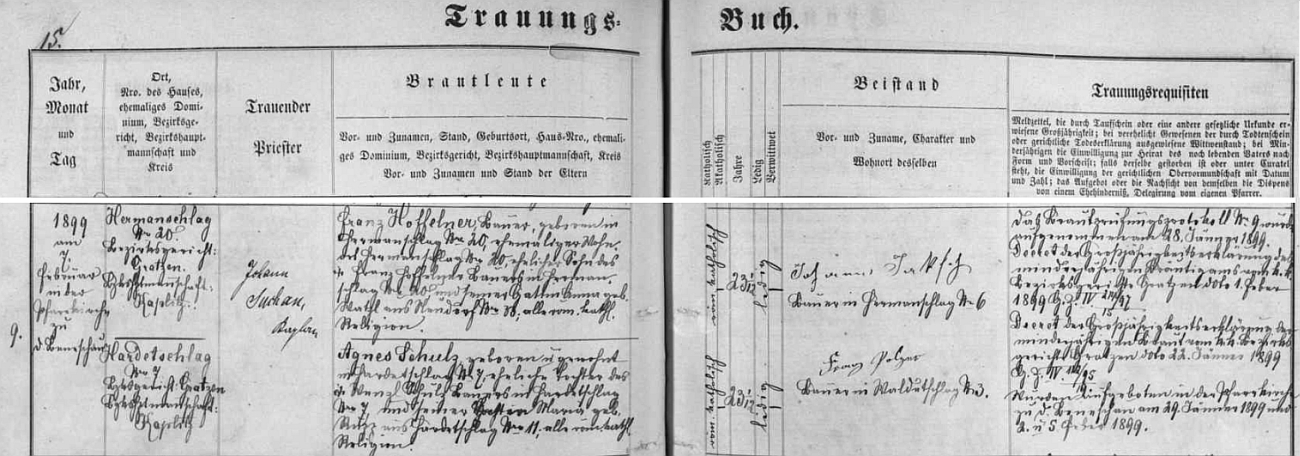 15.
Trauungs-
Buch.
Jahr,
Monat
und
Tag
Ort,
Nro. des Hauses,
ehemaliges Domi-
nium, Bezirksge-
richt, Bezirkshaupt-
mannschaft und
Kreis
Trauender
Priester
Brautleute
Vor- und Zunamen, Stand, Geburtsort, Haus-Nro., ehemali-
ges Dominium, Bezirksgericht, Bezirkshauptmannschaft, Kreis
Vor- und Zunamen und Stand der Eltern
Katholisch
Akatholisch
Jahre
Ledig
Verwittwet
Beistand
Vor- und Zuname, Charakter und
Wohnort desselben
Trauungsrequisiten
Meldzettel, die durch Taufschein oder eine andere gesetzliche Urkunde er-
wiesene Großjährigkeit; bei verehelicht Gewesenen der durch Todtenschein
oder gerichtliche Todeserklärung ausgewiesene Wittwenstand; bei Min-
derjährigen die Einwilligung zur Heirat des noch lebenden Vaters nach
Form und Vorschrift; falls derselbe gestorben ist oder unter Curatel
steht, die Einwilligung der gerichtlichen Obervormundschaft mit Datum
und Zahl; das Aufgebot oder die Nachsicht von demselben die Dispens
von einem Ehehinderniß, Delegirung vom eigenen Pfarrer.
9.
1899
am
7.
Februar
in der
Pfarrkirche
zu
d. Beneschau
Hermanschlag
Nro 20
Bezirksgericht:
Gratzen
Bzhptmannschaft:
Kaplitz
Johann
Suchan,
Kaplan
Franz Hoffelner, Bauer, geboren in
Hermanschlag Nro 20, ehemaliger
Hermanschlag Nro 20, ehelicher Sohn des
Franz Hoffelner Bauers in Herman-
schlag Nro 20 und seiner Gattin Anna geb.
aus Neudorf Nro 38, alle röm. kath.
Religion.
röm. katholisch
23
ledig
Johann Jaksch
Bauer in Hermanschlag No 6
Das Brautprüfungsprotokoll No 9 wurde
aufgenommen am 28. Jänner 1899.
Decret der Großjährigkeitserklärung des
minderjährigen Bräutigams vom k. k.
Bezirksgerichte Gratzen dto 1. Feber
1899
Hardetschlag
Nro 7
Bzksgericht: Gratzen
Bzhptmannschaft:
Kaplitz
Agnes Schulz, geboren u. wohnt
in Hardetschlag No 7, eheliche Tochter des
Wenzl Schulz Bauers in Hardetschlag
No 7 und seiner Gattin Maria geb.
aus Hardetschlag Nro 11, alle röm. kath.
Religion.
röm. katholisch
23
ledig
Franz Polzer
Bauer in Waldetschlag No 3.
Decret der Großjährigkeitserklärung der
minderjährigen Braut vom k. k. Bezirks-
gericht Gratzen dto 22. Jänner 1899
Wurden aufgeboten in der Pfarrkirche
zu d. Beneschau am 29. Jänner 1899 und
2. u 5 Feber 1899.